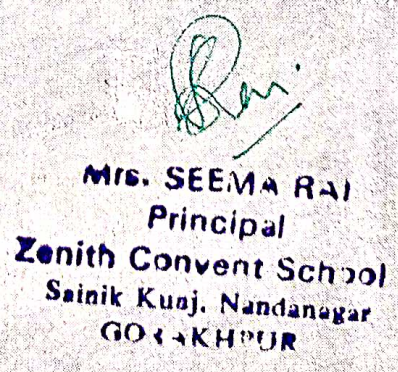 Mrs. SEEMA RAI
Principal
Zenith Convent School
Sainik Kunj, Nandanagar
GORAKHPUR